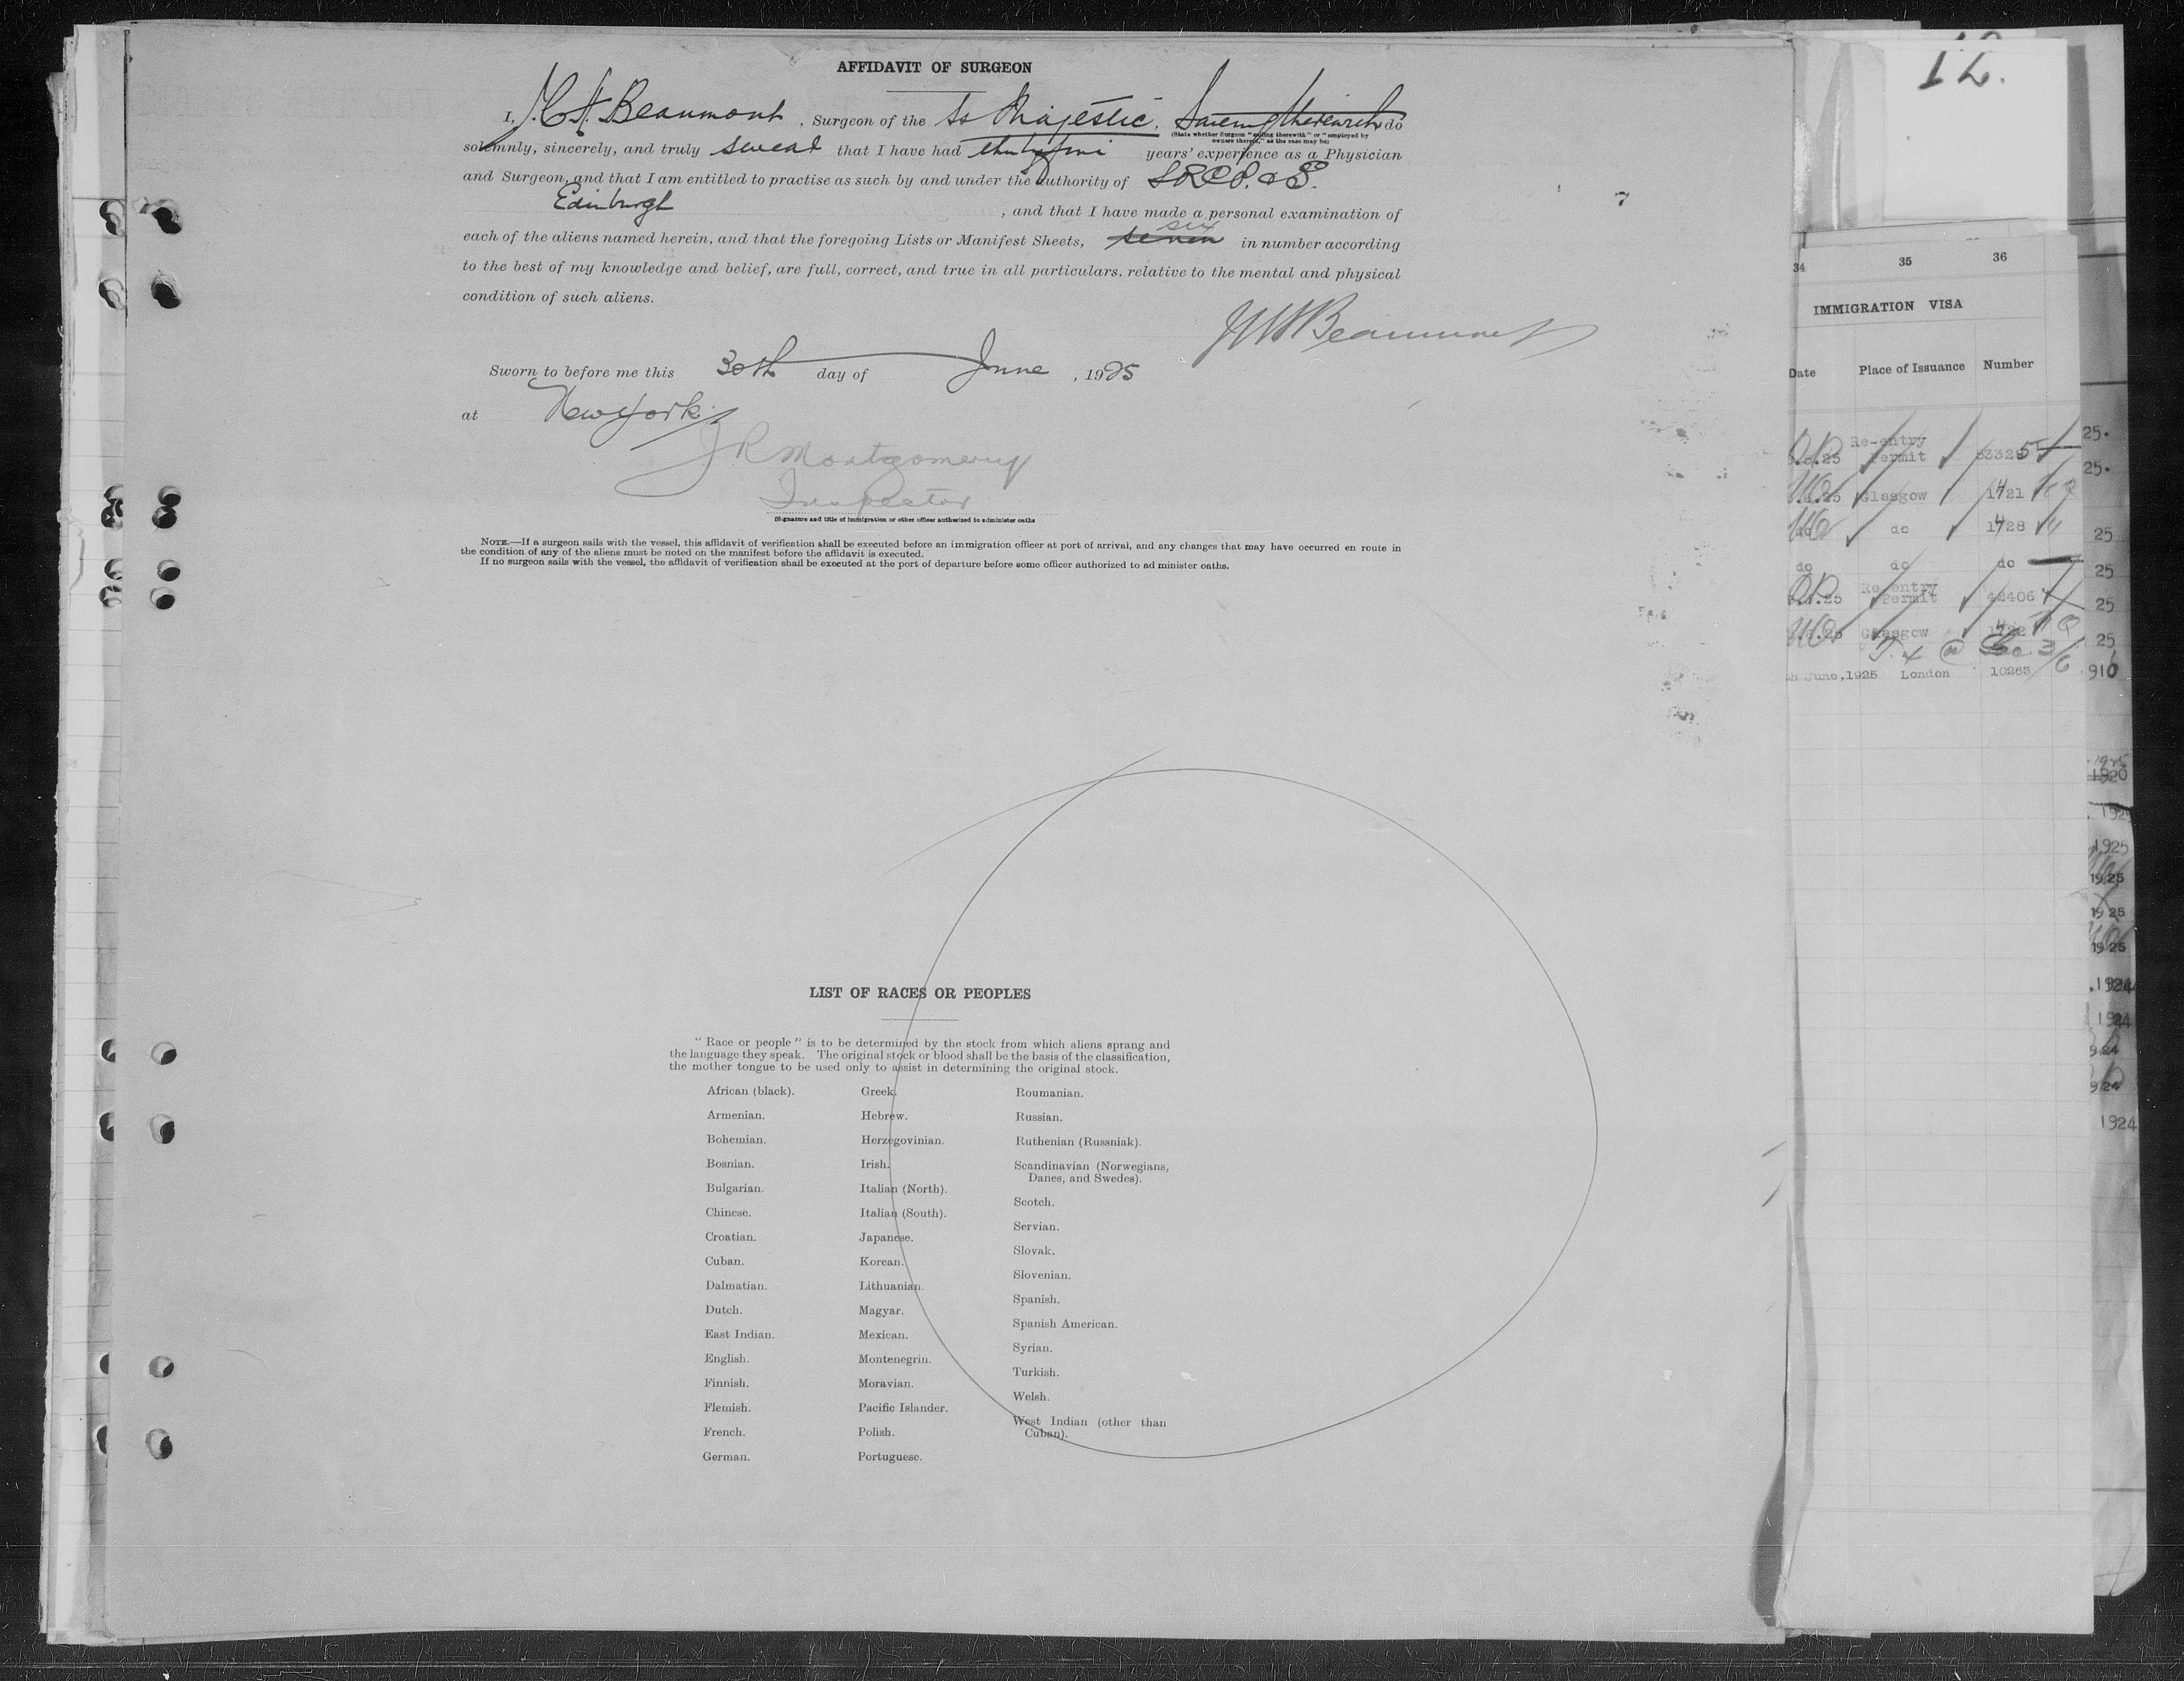 AFFIDAVIT OF SURGEON
I, Beaumont, Surgeon of the Ss Majestic, do
(State whether Surgeon "sailing therewith" or "employed by
owners thereof," as the case may be)
solemnly, sincerely, and truly swear that I have had years' experience as a Physician
and Surgeon, and that I am entitled to practise as such by and under the authority of
Edinburgh, and that I have made a personal examination of
six
each of the aliens named herein, and that the foregoing Lists or Manifest Sheets, seven in number according
to the best of my knowledge and belief, are full, correct, and true in all particulars, relative to the mental and physical
condition of such aliens.
Beaumont
Sworn to before me this 30th day of June, 1925
at New York
J R Montgomery
Inspector
(Signature and title of immigration or other officer authorized to administer oaths
NOTE.—If a surgeon sails with the vessel, this affidavit of verification shall be executed before an immigration officer at port of arrival, and any changes that may have occurred en route in
the condition of any of the aliens must be noted on the manifest before the affidavit is executed.
If no surgeon sails with the vessel, the affidavit of verification shall be executed at the port of departure before some officer authorized to ad minister oaths.
LIST OF RACES OR PEOPLES
"Race or people" is to be determined by the stock from which aliens sprang and
the language they speak. The original stock or blood shall be the basis of the classification,
the mother tongue to be used only to assist in determining the original stock.
African (black).
Armenian.
Bohemian.
Bosnian.
Bulgarian.
Chinese.
Croatian.
Cuban.
Dalmatian.
Dutch.
East Indian.
English.
Finnish.
Flemish.
French.
German.
Greek.
Hebrew.
Herzegovinian.
Irish.
Italian (North).
Italian (South).
Japanese.
Korean.
Lithuanian.
Magyar.
Mexican.
Montenegrin.
Moravian.
Pacific Islander.
Polish.
Portuguese.
Roumanian.
Russian.
Ruthenian (Russniak).
Scandinavian (Norwegians,
Danes, and Swedes).
Scotch.
Servian.
Slovak.
Slovenian.
Spanish.
Spanish American.
Syrian.
Turkish.
Welsh.
West Indian (other than
Cuban).
12.
34 35 36
IMMIGRATION VISA
Date Place of Issuance Number
Re-entry
Permit
Glasgow
do do
do do do
Re-entry
Permit 42406
Glasgow
June, 1925 London 10263
25.
25.
25
25
25
25
916
1925
1925
1925
1925
1925
1924
1924
924
924
1924